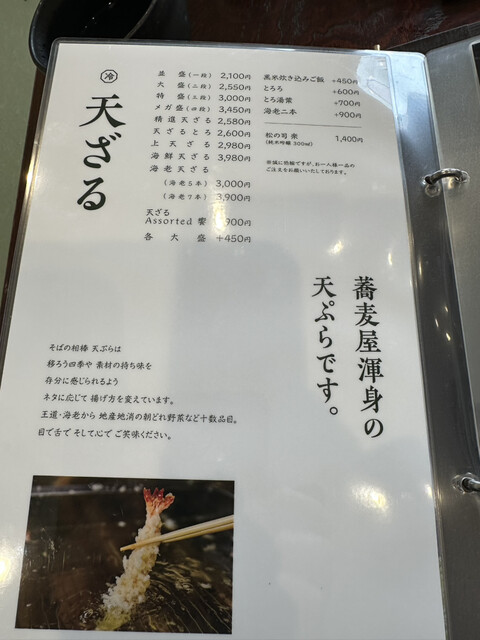 冷
天ざる
並 盛(一段) 2,100円
大 盛(二段) 2,550円
特 盛(三段) 3,000円
メガ盛(四段) 3,450円
精進天ざる 2,580円
天ざるとろ 2,600円
上 天 ざ る 2,980円
海鮮天ざる 3,980円
海老天ざる
(海老5本) 3,000円
(海老7本) 3,900円
天ざる
Assorted 饗 900円
各 大 盛 +450円
黒米炊き込みご飯 +450円
とろろ +600円
とろ湯葉 +700円
海老二本 +900円
松の司 楽 1,400円
(純米吟醸 300ml)
恐縮に恐縮ですが、お一人様一品の
ご注文をお願いいたしております。
蕎麦屋渾身の
天ぷらです。
そばの相棒 天ぷらは
移ろう四季や 素材の持ち味を
存分に感じられるよう
ネタに応じて 揚げ方を変えています。
王道・海老から 地産地消の朝どれ野菜など十数品目。
目で舌で そして心で ご笑味ください。